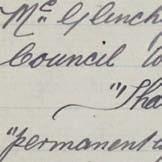 Mc Glinch
Council to
"Tha
"permanent